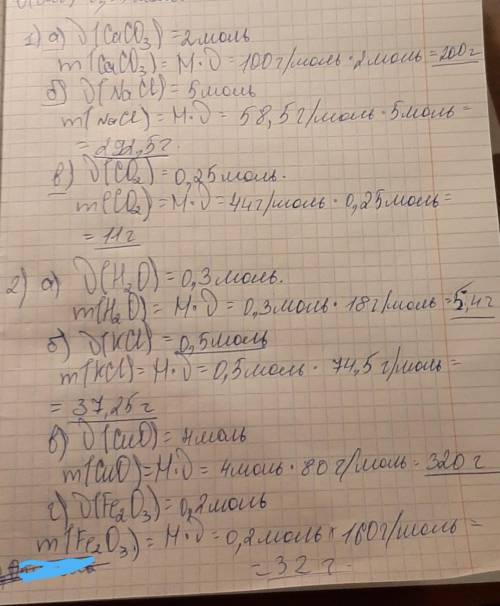 1) а) ν(CaCO₃) = 2 моль
m(CaCO₃) = M·ν = 100 г/моль · 2 моль = 200 г
б) ν(NaCl) = 5 моль
m(NaCl) = M·ν = 58,5 г/моль · 5 моль =
= 292,5 г.
в) ν(CO₂) = 0,25 моль.
m(CO₂) = M·ν = 44 г/моль · 0,25 моль =
= 11 г
2) а) ν(H₂O) = 0,3 моль.
m(H₂O) = M·ν = 0,3 моль · 18 г/моль = 5,4 г
б) ν(KCl) = 0,5 моль
m(KCl) = M·ν = 0,5 моль · 74,5 г/моль =
= 37,25 г
в) ν(CuO) = 4 моль
m(CuO) = M·ν = 4 моль · 80 г/моль = 320 г
г) ν(Fe₂O₃) = 0,2 моль
m(Fe₂O₃) = M·ν = 0,2 моль × 160 г/моль =
= 32 г.